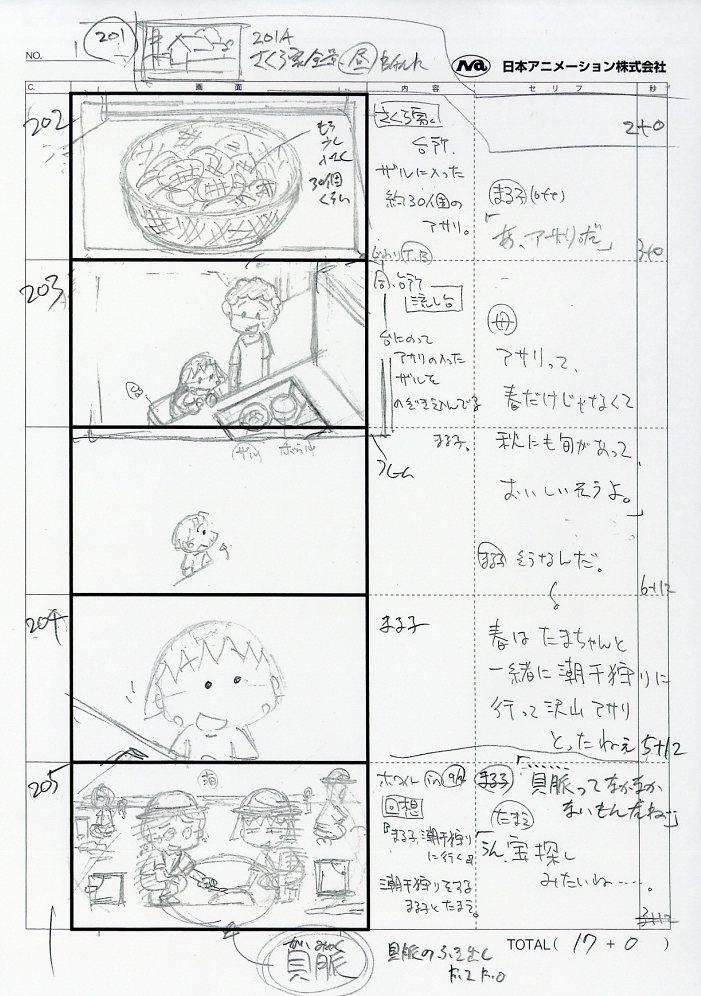 NO. 1
201
2014
さくら家全景 昼
日本アニメーション株式会社
C. 画面 内容 セリフ 秒
202
30個
くらい
さくら家
台所、
ザルに入った
約30個の
アサリ。
まる子(off)
「あ、アサリだ」
2+0
3+0
203
同、台所
流し台
台にのって
アサリの入った
ザルを
のぞき込んでる
まる子。
母
アサリって、
春だけじゃなくて
秋にも旬があって、
おいしいそうよ。」
まる子 そうなんだ。
6+12
204
まる子
春はたまちゃんと
一緒に潮干狩りに
行って沢山アサリ
とったねぇ
5+12
205
海
回想
『まる子、潮干狩り
に行く』
潮干狩りをする
まる子とたまえ。
まる子
貝脈ってなかなか
ないもんだねー」
たまえ
「うん、宝探し
みたいね……。
3+12
貝脈
貝脈のふき出し
TOTAL( 17 + 0 )